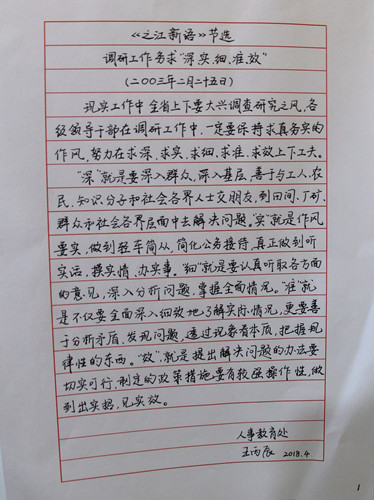 《之江新语》节选
调研工作务求"深、实、细、准、效"
(二〇〇三年二月二十五日)
现实工作中全省上下要大兴调查研究之风,各
级领导干部在调研工作中,一定要保持求真务实的
作风,努力在求深、求实、求细、求准、求效上下工夫。
"深"就是要深入群众,深入基层,善于与工人、农
民、知识分子和社会各界人士交朋友,到田间、厂矿、
群众和社会各界层面中去解决问题。"实"就是作风
要实,做到轻车简从,简化公务接待,真正做到听
实话、摸实情、办实事。"细"就是要认真听取各方面
的意见,深入分析问题,掌握全面情况。"准"就
是不仅要全面深入细致地了解实际情况,更要善
于分析矛盾、发现问题,透过现象看本质,把握规
律性的东西。"效",就是提出解决问题的办法要
切实可行,制定的政策措施要有较强操作性,做
到出实招,见实效。
人事教育处
王丙辰 2018.4
1